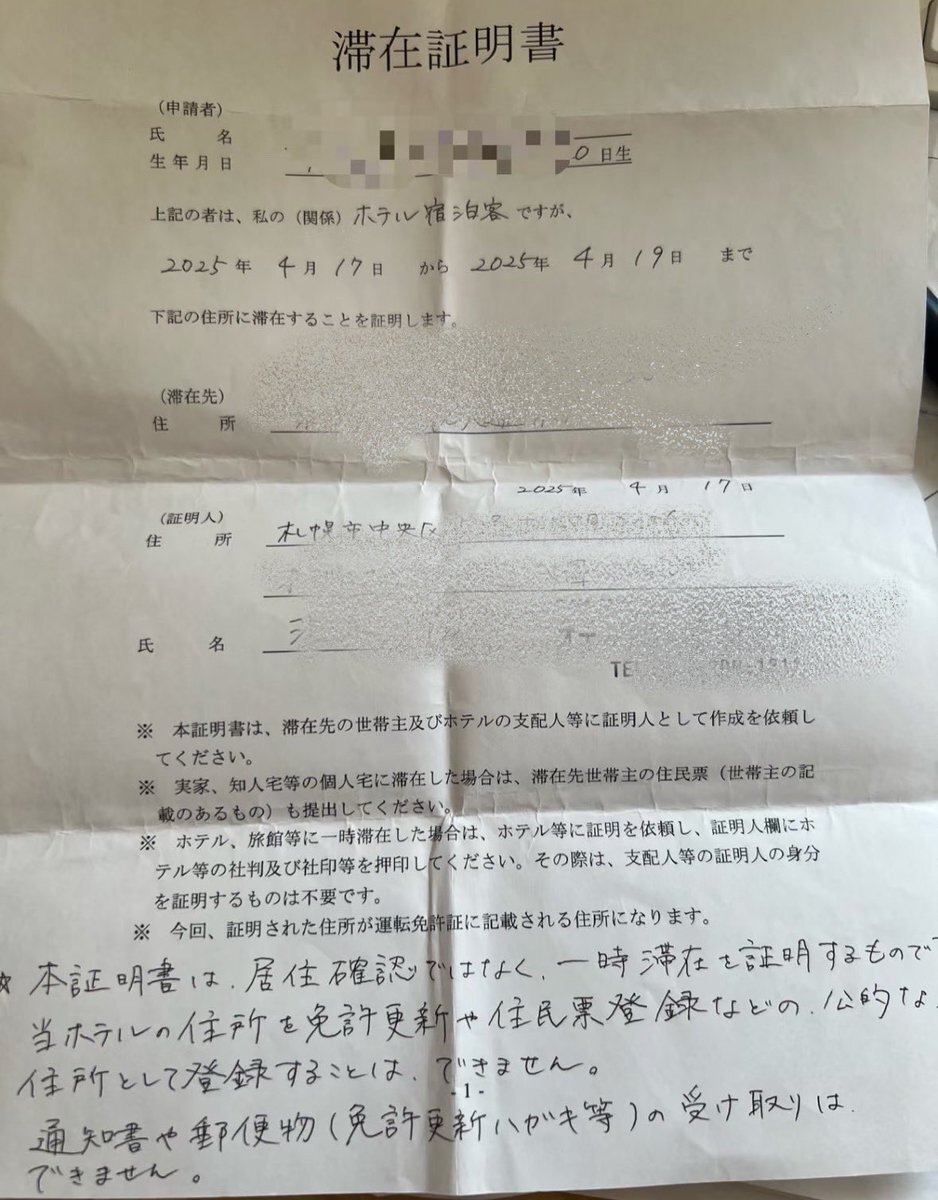 滞在証明書
（申請者）
氏　　名
生年月日　0日生
上記の者は、私の（関係）ホテル宿泊客ですが、
2025年 4月 17日 から 2025年 4月 19日 まで
下記の住所に滞在することを証明します。
（滞在先）
住　　所
2025年 4月 17日
（証明人）
住　　所　札幌市中央区
氏　　名
※　本証明書は、滞在先の世帯主及びホテルの支配人等に証明人として作成を依頼し
てください。
※　実家、知人宅等の個人宅に滞在した場合は、滞在先世帯主の住民票（世帯主の記
載のあるもの）も提出してください。
※　ホテル、旅館等に一時滞在した場合は、ホテル等に証明を依頼し、証明人欄にホ
テル等の社判及び社印等を押印してください。その際は、支配人等の証明人の身分
を証明するものは不要です。
※　今回、証明された住所が運転免許証に記載される住所になります。
☆ 本証明書は、居住確認ではなく、一時滞在を証明するもので
当ホテルの住所を免許更新や住民票登録などの、公的な
住所として登録することは、できません。
-1-
通知書や郵便物(免許更新ハガキ等)の受け取りは
できません。